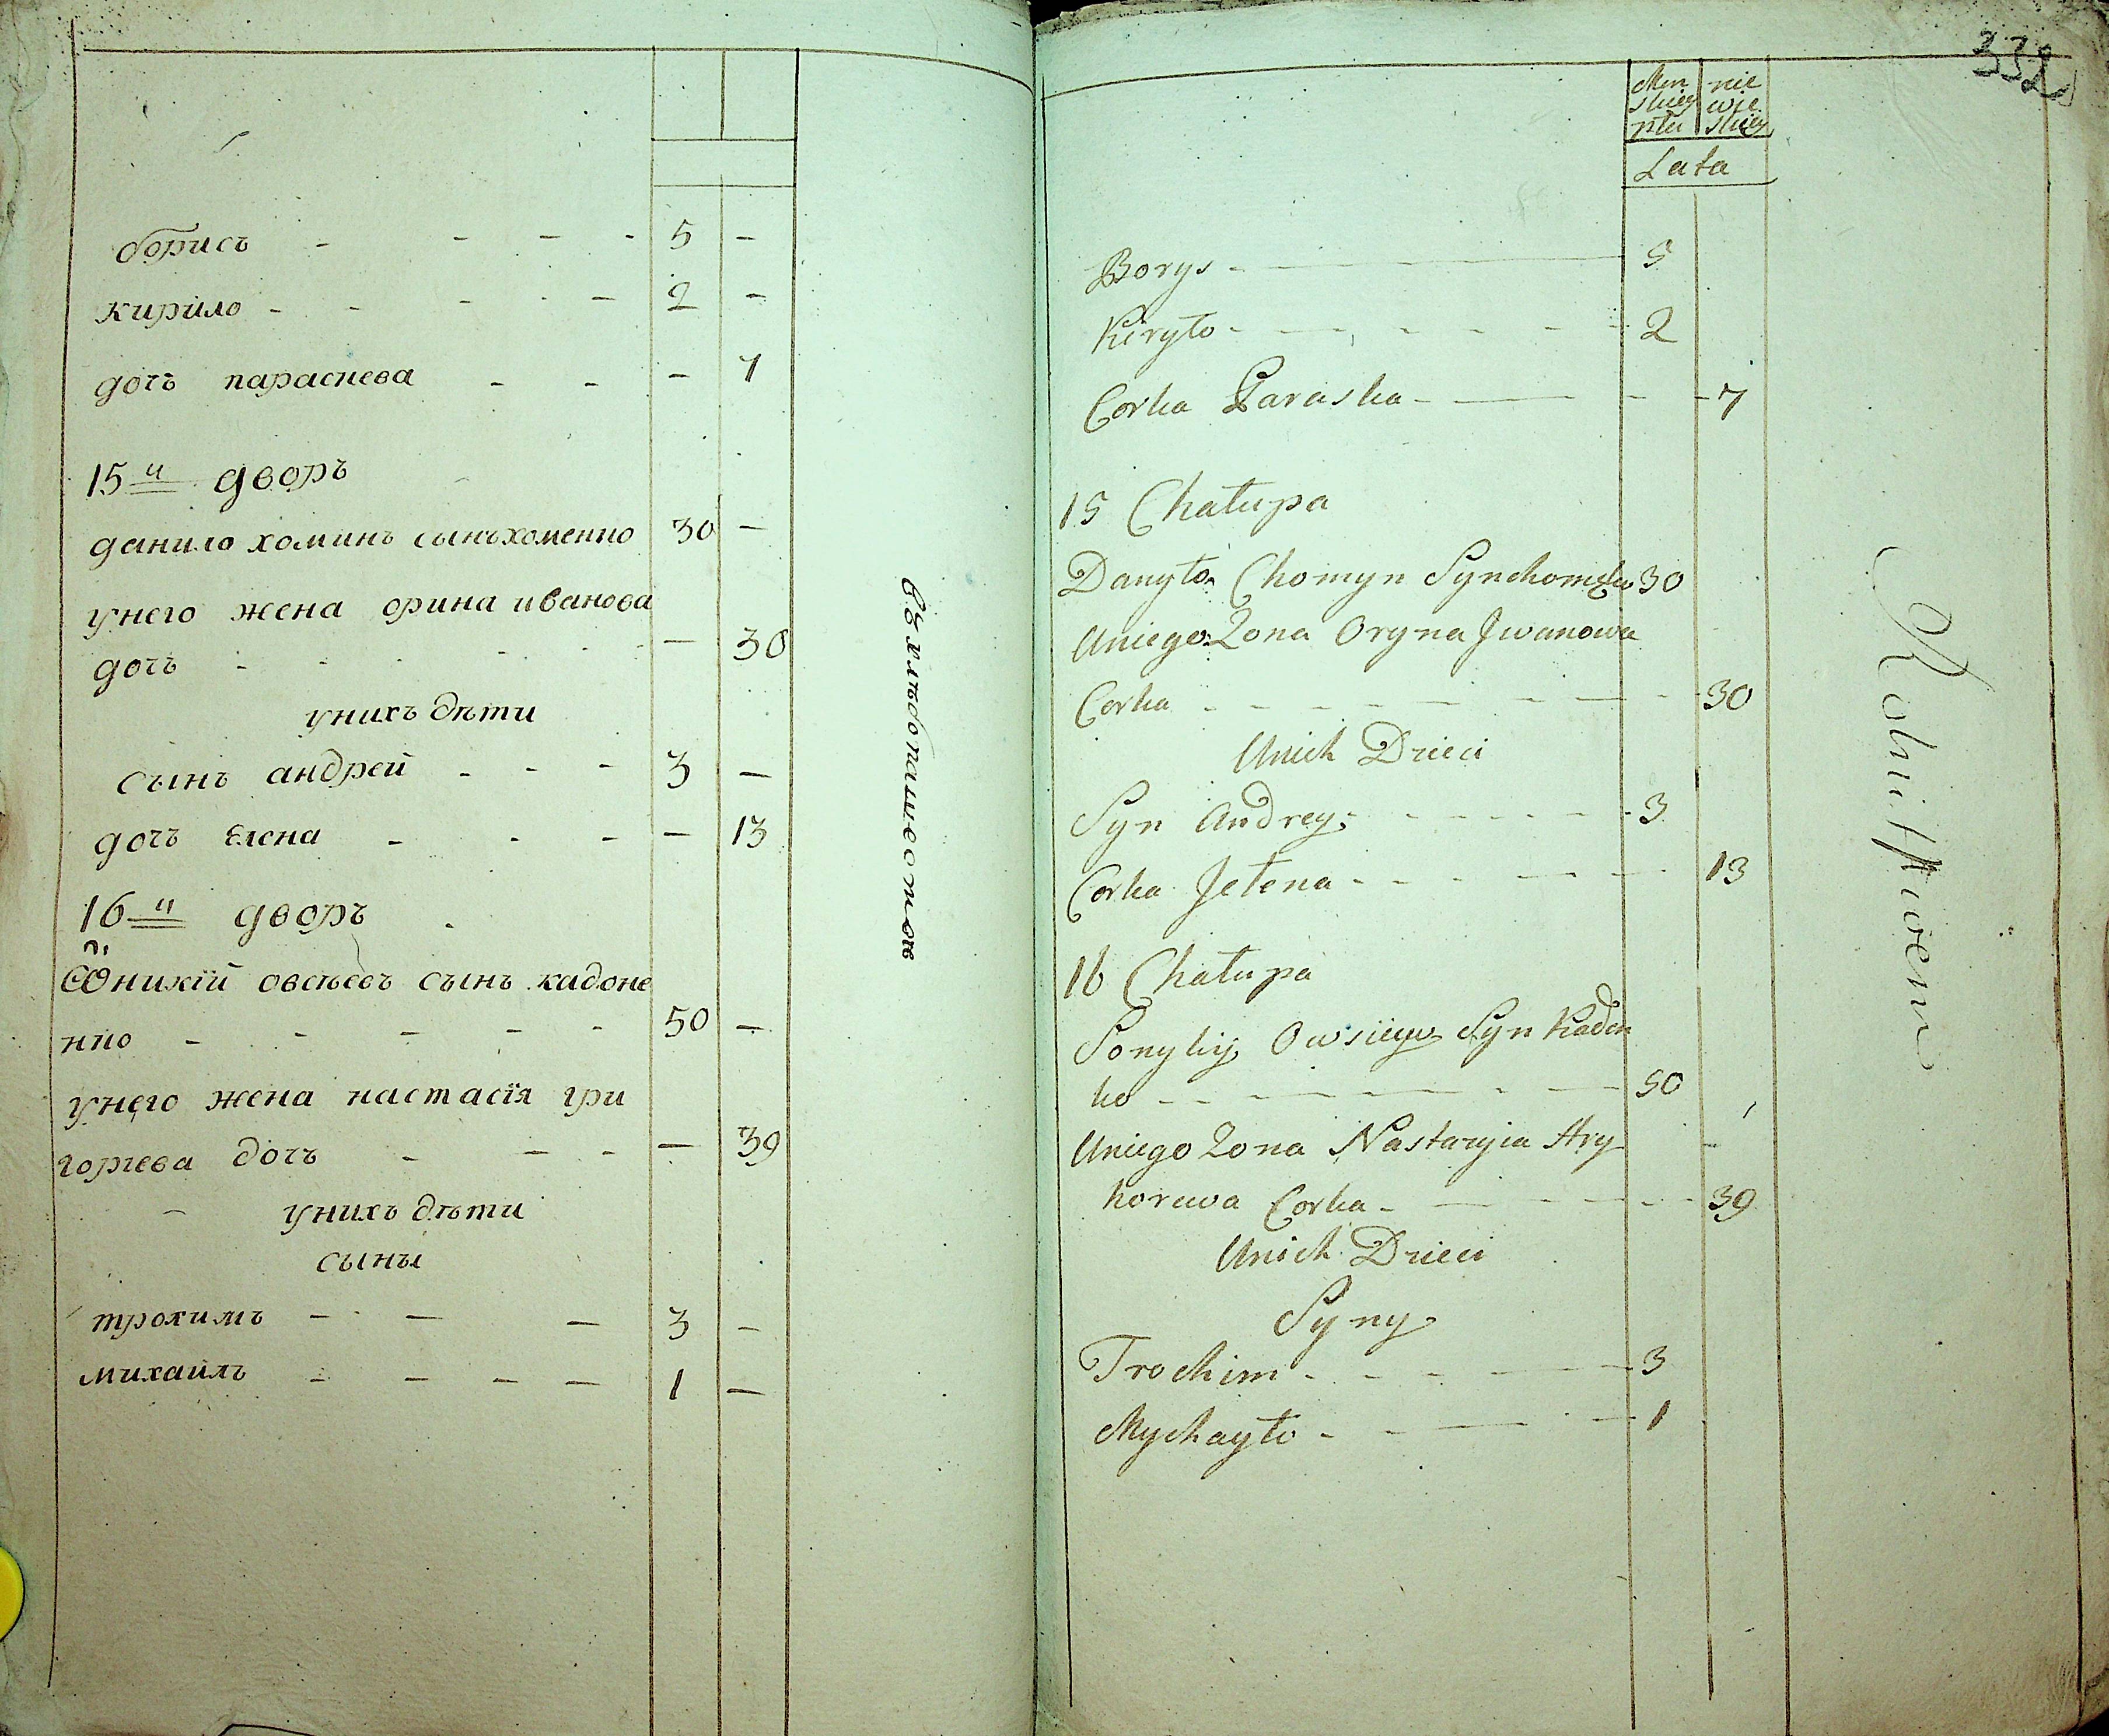 борисъ - - - - 5 -
кирило - - - - - 2 -
дочь параскева - - - 7
15й дворъ
данило хоминъ сынъ хоменко 30 -
унего жена орина иванова
дочь - - - - - - 30
унихъ дѣти
сынъ андрей - - - 3 -
дочь Елена - - - - 13
16й дворъ
овсѣевъ сынъ кадоне
нко - - - - - 50 -
унего жена настасїя гри
горїева дочь - - - - 39
унихъ дѣти
сыны
трохимъ - - - 3 -
михайлъ - - - - 1 -
въ хлѣбопашествѣ
332
Men nie
skiey wie
płci skiey
Lata
Borys - 5
Kiryło - - - - - - 2
Corka Paraska - - - - 7
15 Chałupa
Danyło Chomyn Syn 30
Uniego Zona Oryna Jwanowa
Corka - - - - - - - - 30
Unich Dzieci
Syn Andrey - - - - - - 3
Corka Jełena - - - - - - 13
16 Chałupa
Owsiiejw Syn Kadon
ko - - - - - - - 50
Uniego Zona Nastazyia Hry
horewa Corka - - - - - - 39
Unich Dzieci
Syny
Trochim - - - - - - 3
Mychayło - - - - - 1
Rolnictwem